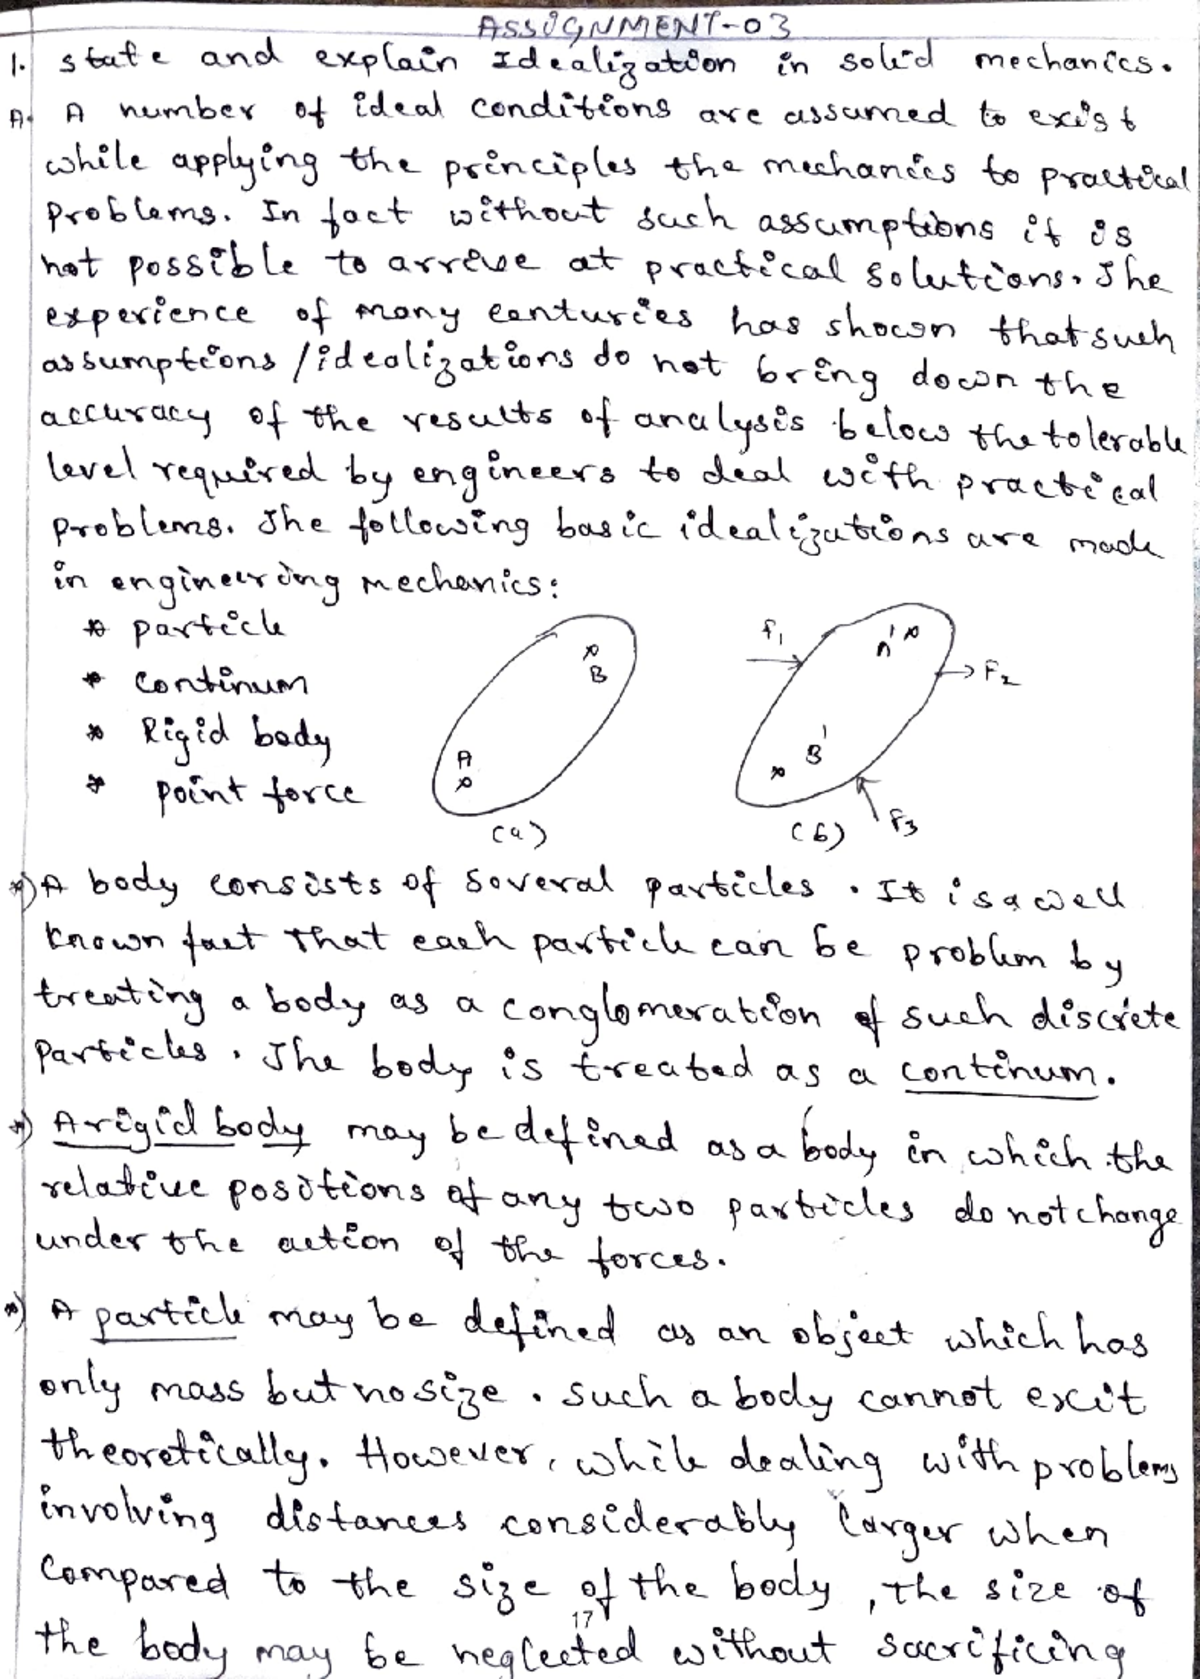 ASSIGNMENT-03
1. state and explain Idealization in solid mechanics.
A. A number of ideal conditions are assumed to exist
while applying the principles the mechanics to practical
problems. In fact without such assumptions it is
not possible to arrive at practical solutions. The
experience of many centuries has shown that such
assumptions / idealizations do not bring down the
accuracy of the results of analysis below the tolerable
level required by engineers to deal with practical
problems. The following basic idealizations are made
in engineering mechanics:
* particle
* continum
* Rigid body
* point force
A B
(a)
F1 A' F2
B'
F3
(b)
*) A body consists of several particles. It is a well
known fact that each particle can be problem by
treating a body as a conglomeration of such discrete
particles. The body is treated as a continum.
*) A rigid body may be defined as a body in which the
relative positions of any two particles do not change
under the action of the forces.
*) A particle may be defined as an object which has
only mass but no size. such a body cannot excit
theoretically. However, while dealing with problems
involving distances considerably larger when
compared to the size of the body, the size of
the body may be neglected without sacrificing
17